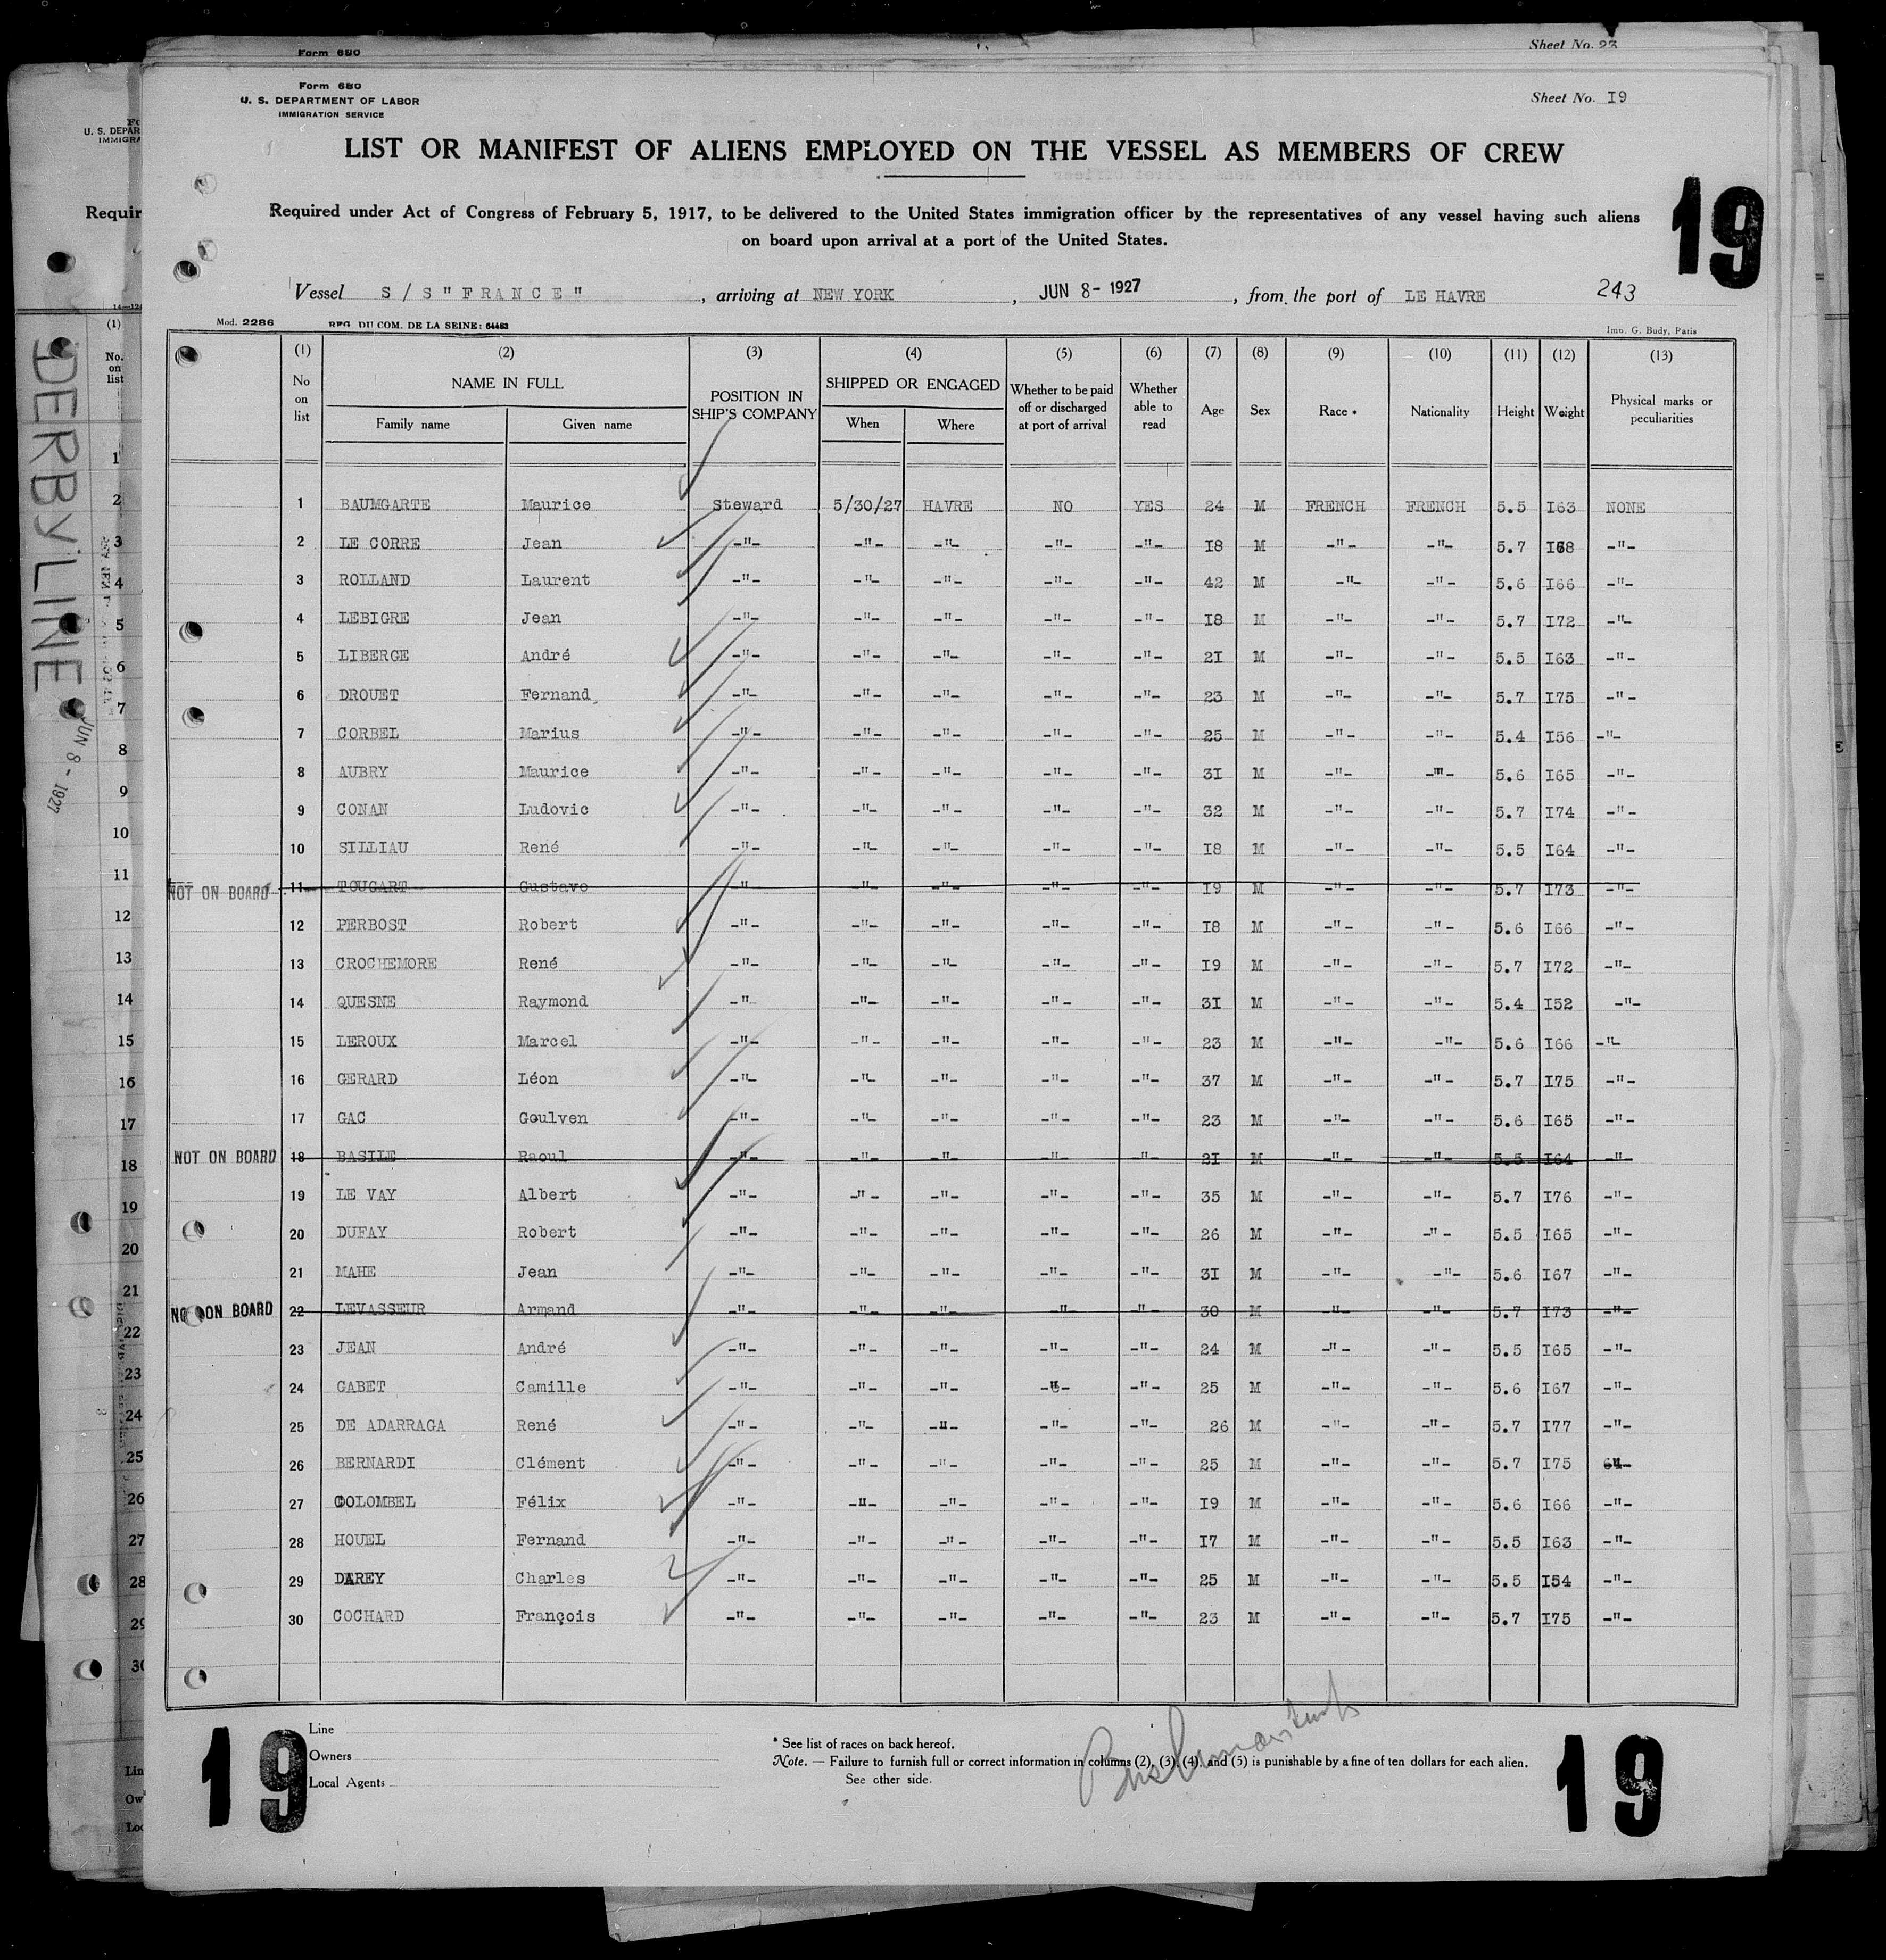 Form 680
Sheet No. 23
Form 680
U. S. DEPARTMENT OF LABOR
IMMIGRATION SERVICE
Sheet No. I9
LIST OR MANIFEST OF ALIENS EMPLOYED ON THE VESSEL AS MEMBERS OF CREW
Required under Act of Congress of February 5, 1917, to be delivered to the United States immigration officer by the representatives of any vessel having such aliens
on board upon arrival at a port of the United States.
19
Vessel S/S "FRANCE", arriving at NEW YORK, JUN 8 - 1927, from the port of LE HAVRE 243
Mod. 2286 REG. DU COM. DE LA SEINE: 64483 Imp. G. Budy, Paris
(1) (2) (3) (4) (5) (6) (7) (8) (9) (10) (11) (12) (13)
No on list NAME IN FULL Family name Given name POSITION IN SHIP'S COMPANY SHIPPED OR ENGAGED When Where Whether to be paid off or discharged at port of arrival Whether able to read Age Sex Race * Nationality Height Weight Physical marks or peculiarities
1 BAUMGARTE Maurice Steward 5/30/27 HAVRE NO YES 24 M FRENCH FRENCH 5.5 I63 NONE
2 LE CORRE Jean -"- -"- -"- -"- -"- I8 M -"- -"- 5.7 I68 -"-
3 ROLLAND Laurent -"- -"- -"- -"- -"- 42 M -"- -"- 5.6 I66 -"-
4 LEBIGRE Jean -"- -"- -"- -"- -"- I8 M -"- -"- 5.7 I72 -"-
5 LIBERGE André -"- -"- -"- -"- -"- 2I M -"- -"- 5.5 I63 -"-
6 DROUET Fernand -"- -"- -"- -"- -"- 23 M -"- -"- 5.7 I75 -"-
7 CORBEL Marius -"- -"- -"- -"- -"- 25 M -"- -"- 5.4 I56 -"-
8 AUBRY Maurice -"- -"- -"- -"- -"- 3I M -"- -"- 5.6 I65 -"-
9 CONAN Ludovic -"- -"- -"- -"- -"- 32 M -"- -"- 5.7 I74 -"-
10 SILLIAU René -"- -"- -"- -"- -"- I8 M -"- -"- 5.5 I64 -"-
NOT ON BOARD 11 TOUGART Gustave -"- -"- -"- -"- -"- I9 M -"- -"- 5.7 I73 -"-
12 PERBOST Robert -"- -"- -"- -"- -"- I8 M -"- -"- 5.6 I66 -"-
13 CROCHEMORE René -"- -"- -"- -"- -"- I9 M -"- -"- 5.7 I72 -"-
14 QUESNE Raymond -"- -"- -"- -"- -"- 3I M -"- -"- 5.4 I52 -"-
15 LEROUX Marcel -"- -"- -"- -"- -"- 23 M -"- -"- 5.6 I66 -"-
16 GERARD Léon -"- -"- -"- -"- -"- 37 M -"- -"- 5.7 I75 -"-
17 GAC Goulven -"- -"- -"- -"- -"- 23 M -"- -"- 5.6 I65 -"-
NOT ON BOARD 18 BASILE Raoul -"- -"- -"- -"- -"- 2I M -"- -"- 5.5 I64 -"-
19 LE VAY Albert -"- -"- -"- -"- -"- 35 M -"- -"- 5.7 I76 -"-
20 DUFAY Robert -"- -"- -"- -"- -"- 26 M -"- -"- 5.5 I65 -"-
21 MAHE Jean -"- -"- -"- -"- -"- 3I M -"- -"- 5.6 I67 -"-
NOT ON BOARD 22 LEVASSEUR Armand -"- -"- -"- -"- -"- 30 M -"- -"- 5.7 I73 -"-
23 JEAN André -"- -"- -"- -"- -"- 24 M -"- -"- 5.5 I65 -"-
24 GABET Camille -"- -"- -"- -"- -"- 25 M -"- -"- 5.6 I67 -"-
25 DE ADARRAGA René -"- -"- -"- -"- -"- 26 M -"- -"- 5.7 I77 -"-
26 BERNARDI Clément -"- -"- -"- -"- -"- 25 M -"- -"- 5.7 I75 -"-
27 COLOMBEL Félix -"- -"- -"- -"- -"- I9 M -"- -"- 5.6 I66 -"-
28 HOUEL Fernand -"- -"- -"- -"- -"- I7 M -"- -"- 5.5 I63 -"-
29 DAREY Charles -"- -"- -"- -"- -"- 25 M -"- -"- 5.5 I54 -"-
30 COCHARD François -"- -"- -"- -"- -"- 23 M -"- -"- 5.7 I75 -"-
19
Line
Owners
Local Agents
* See list of races on back hereof.
Note. — Failure to furnish full or correct information in columns (2), (3), (4), and (5) is punishable by a fine of ten dollars for each alien.
See other side.
19
U. S. DEPAR
IMMIGRA
Requir
(1)
No.
on
list
1
2
3
4
5
6
7
8
9
10
11
12
13
14
15
16
17
18
19
20
21
22
23
24
25
26
27
28
29
30
Lin
Ow
Loc
DERBY LINE
JUN 8 - 1927